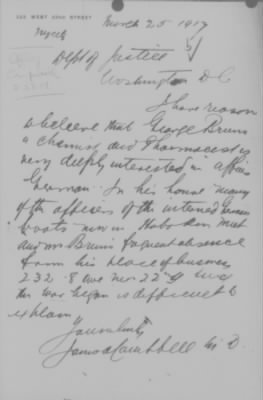 WEST 22ND STREET
March 25 1917
Dept of Justice
Washington D C
I have reason
to believe that George Bruns
a chemist and Pharmacist is
very deeply interested in affairs
German. In his house many
of the officers of the interned German
boats now in Hoboken meet
and Mr Bruns frequent absence
from his place of business
232 8 ave nr 22 st since
the war began is difficult to
explain
Yours truly
James Campbell M. D.